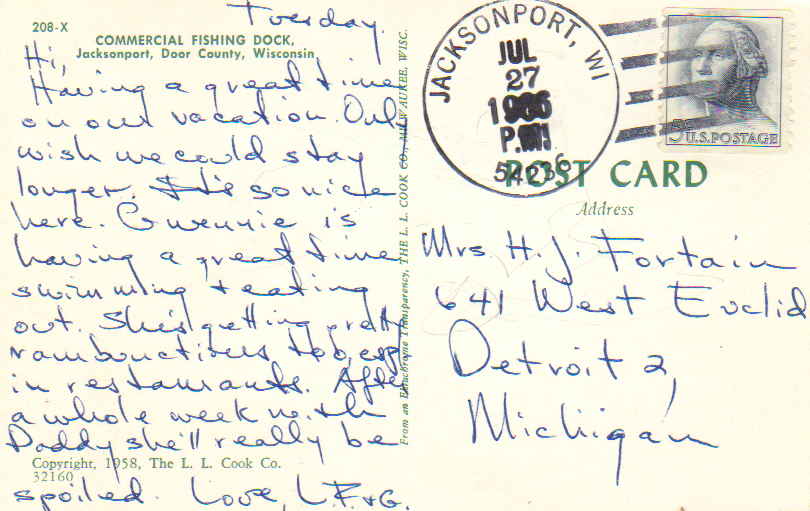 Tuesday.
208-X
COMMERCIAL FISHING DOCK,
Jacksonport, Door County, Wisconsin
Hi,
Having a great time
on our vacation. Only
wish we could stay
longer. It's so nice
here. Gwennie is
having a great time
swimming & eating
out. She's getting pretty
rambunctious, too, esp.
in restaurants. After
a whole week with
Daddy she'll really be
Copyright, 1958, The L. L. Cook Co.
32160
spoiled. Love, L.F.&G.
From an Ektachrome Transparency, THE L. L. COOK CO., MILWAUKEE, WISC.
JACKSONPORT, WI
JUL
27
1966
P.M.
54236
5c U.S. POSTAGE
POST CARD
Address
Mrs. H. J. Fortain
641 West Euclid
Detroit 2,
Michigan